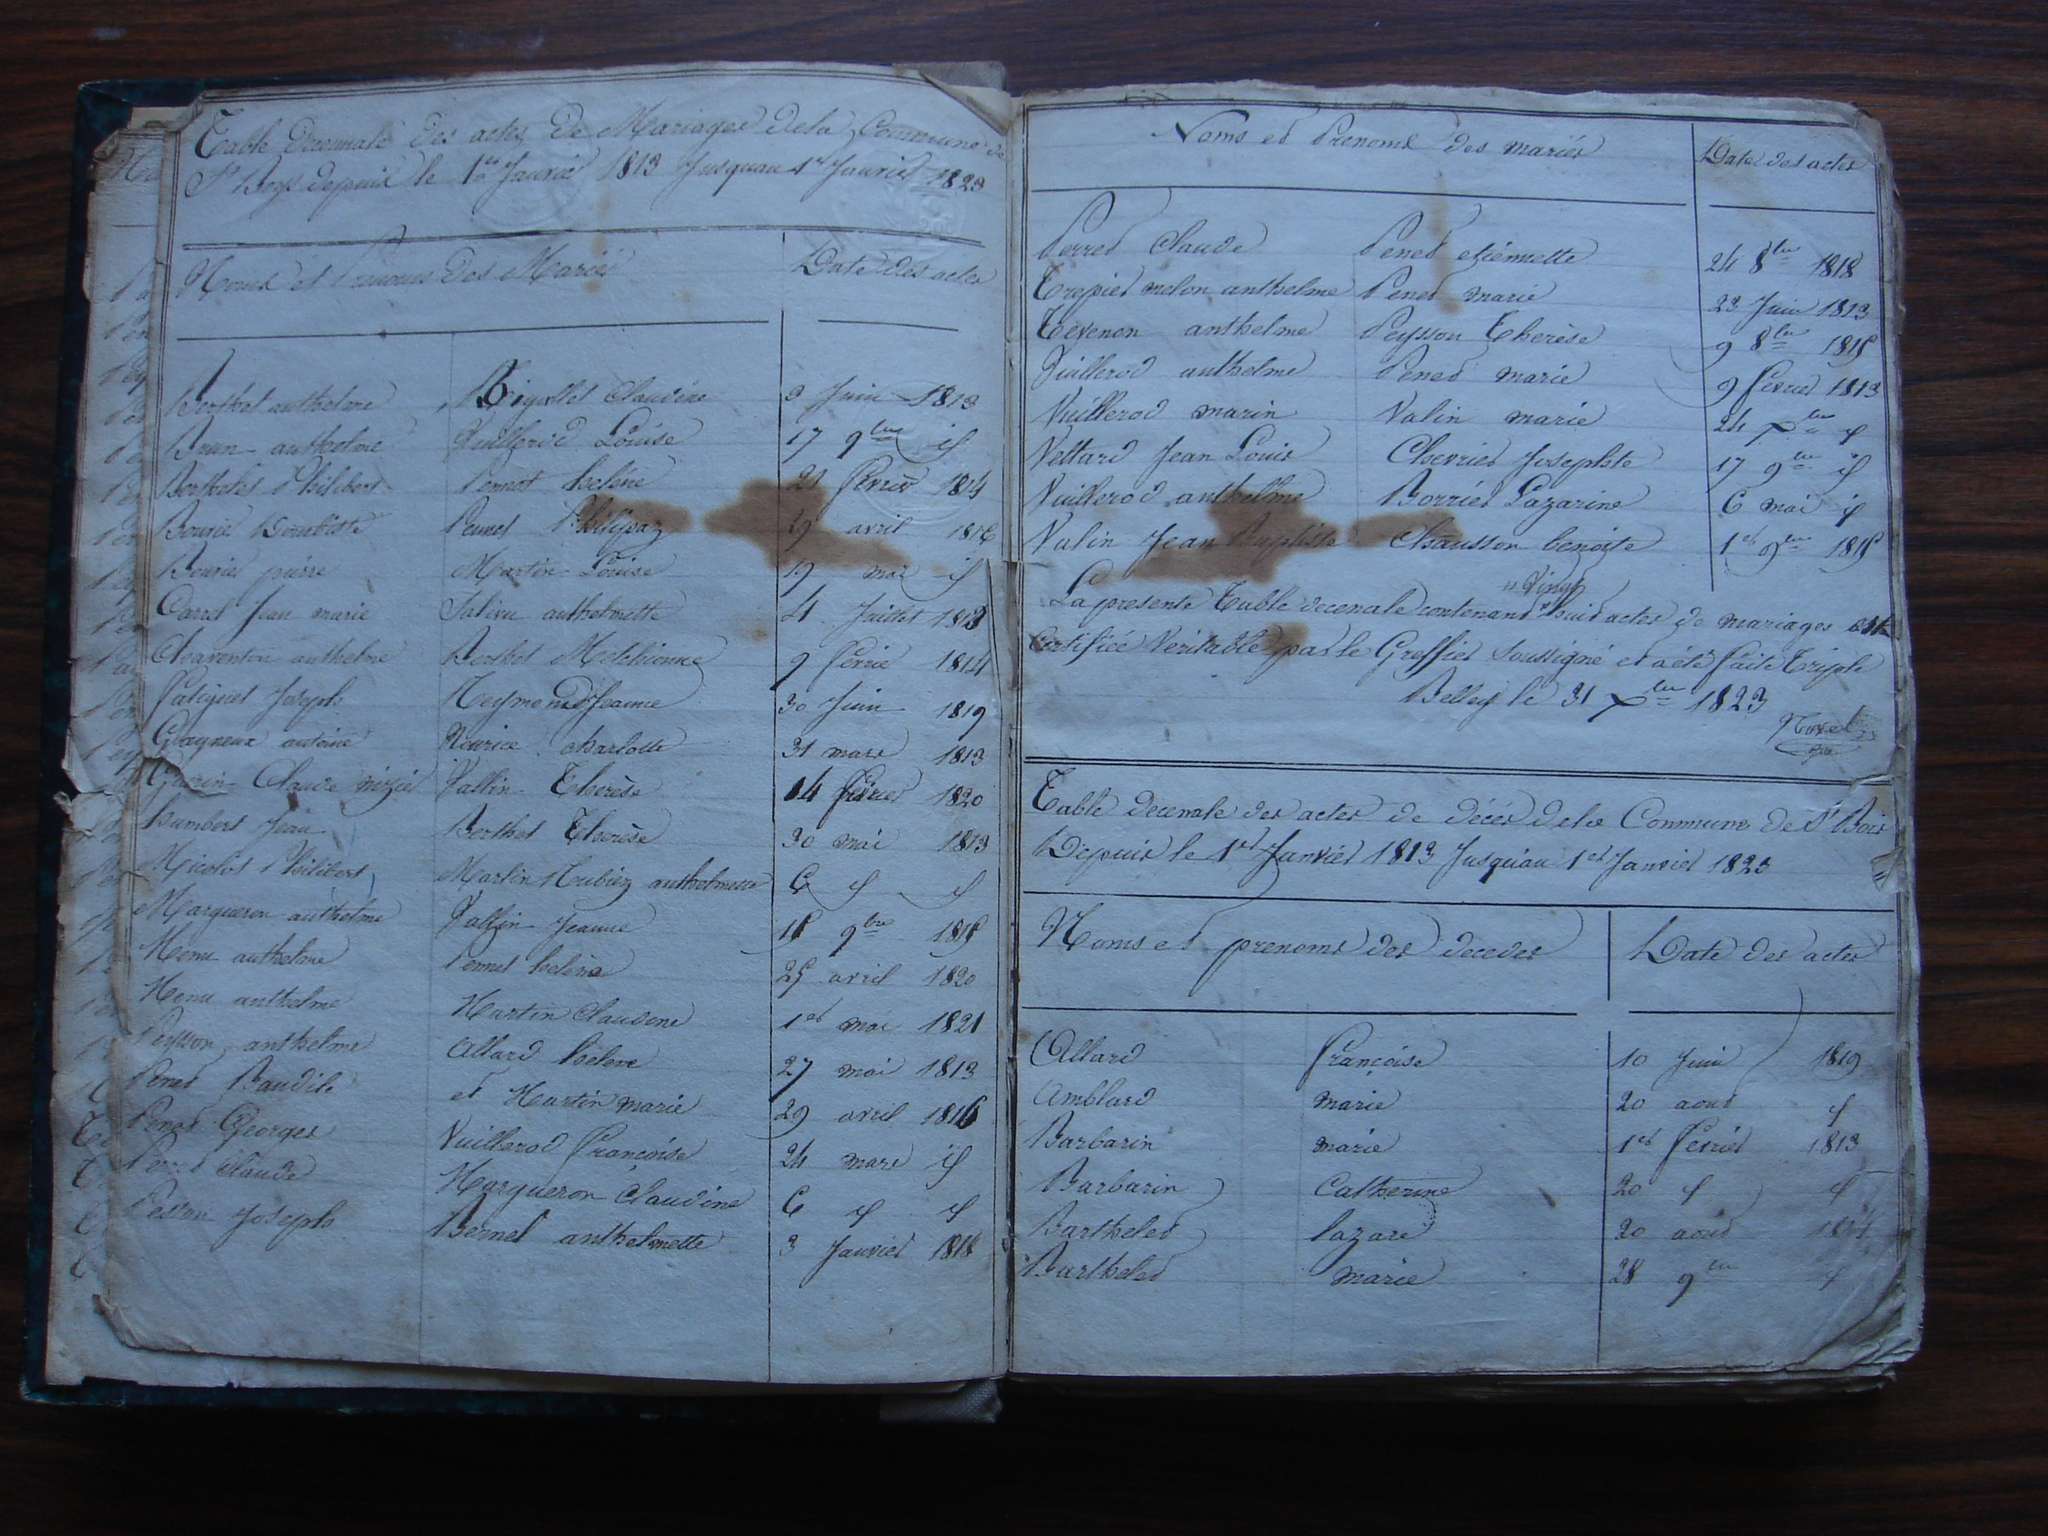 Table Decennale des actes de Mariages de la Commune de
St Boys depuis le 1er Janvier 1813 Jusquau 1er Janvier 1823
Noms et Prenoms Des Mariés Date des actes
Berthet anthelme Claudine 3 Juin 1813
Brun anthelme Vuillerod Louise 17 9bre if
Berthelet Philibert Pennet heléne 21 fevrier 1814
Pennet 29 avril 1816
Bourié pierre Martin Louise 19 mai if
Carret Jean marie anthelmette 4 Juillet 1813
Charenton anthelme Berthet Melchionne 9 fevrié 1814
Joseph Reymond Jeanne 30 Juin 1819
Gagneux antoine charlotte 31 mars 1813
Guerin Claude Vallin Therèse 14 fevrier 1820
humbert Jean Berthet Therèse 30 mai 1813
Micolet Philibert Martin anthelmette 6 if if
Margueron anthelme Vallin Jeanne 18 9bre 1818
Menu anthelme Pennet heléne 25 avril 1820
Menu anthelme Martin Claudine 1er mai 1821
Peysson anthelme Allard heléne 27 mai 1813
Penet Baudile et Martin marie 29 avril 1816
Penet Georges Vuillerod françoise 24 mars if
Perret Claude Margueron Claudine 6 if if
Joseph Bernet anthelmette 3 Janvier 1818
Noms et Prenoms des mariés Date des actes
Perret Claude Penet etiennette 24 8bre 1818
Trepier melon anthelme Penet marie 23 Juin 1813
Tevenon anthelme Peysson Therèse 9 8bre 1818
Vuillerod anthelme Penet marie 9 fevrier 1813
Vuillerod marin Valin marie 24 xbre if
Vettard Jean Louis Chevrier Josephte 17 9bre if
Vuillerod anthelme Borrier Lazarine 6 mai if
Valin Jean Baptiste Chausson benoite 1er 9bre 1818
" Vingt
La presente Table decenale contenant huit actes de mariages est
Certifiée Veritable par le Greffier soussigné et a été faite Triple
Belley le 31 xbre 1823
Table decenale des actes de décés de la Commune de St Bois
Depuis le 1er Janvier 1813 Jusqu'au 1er Janvier 1823
Noms et prenoms des decedes Date des actes
Allard françoise 10 Juin 1819
Amblard marie 20 aout if
Barbarin marie 1er fevrier 1813
Barbarin Catherine 20 if if
Barthelet lazare 20 aout 1814
Barthelet marie 28 9bre if